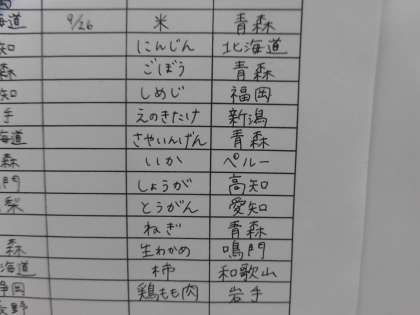 海道 9/26 米 青森
知 にんじん 北海道
森 ごぼう 青森
知 しめじ 福岡
手 えのきたけ 新潟
海道 さやいんげん 青森
森 いか ペルー
門 しょうが 高知
梨 とうがん 愛知
ねぎ 青森
森 生わかめ 鳴門
海道 柿 和歌山
静岡 鶏もも肉 岩手
長野